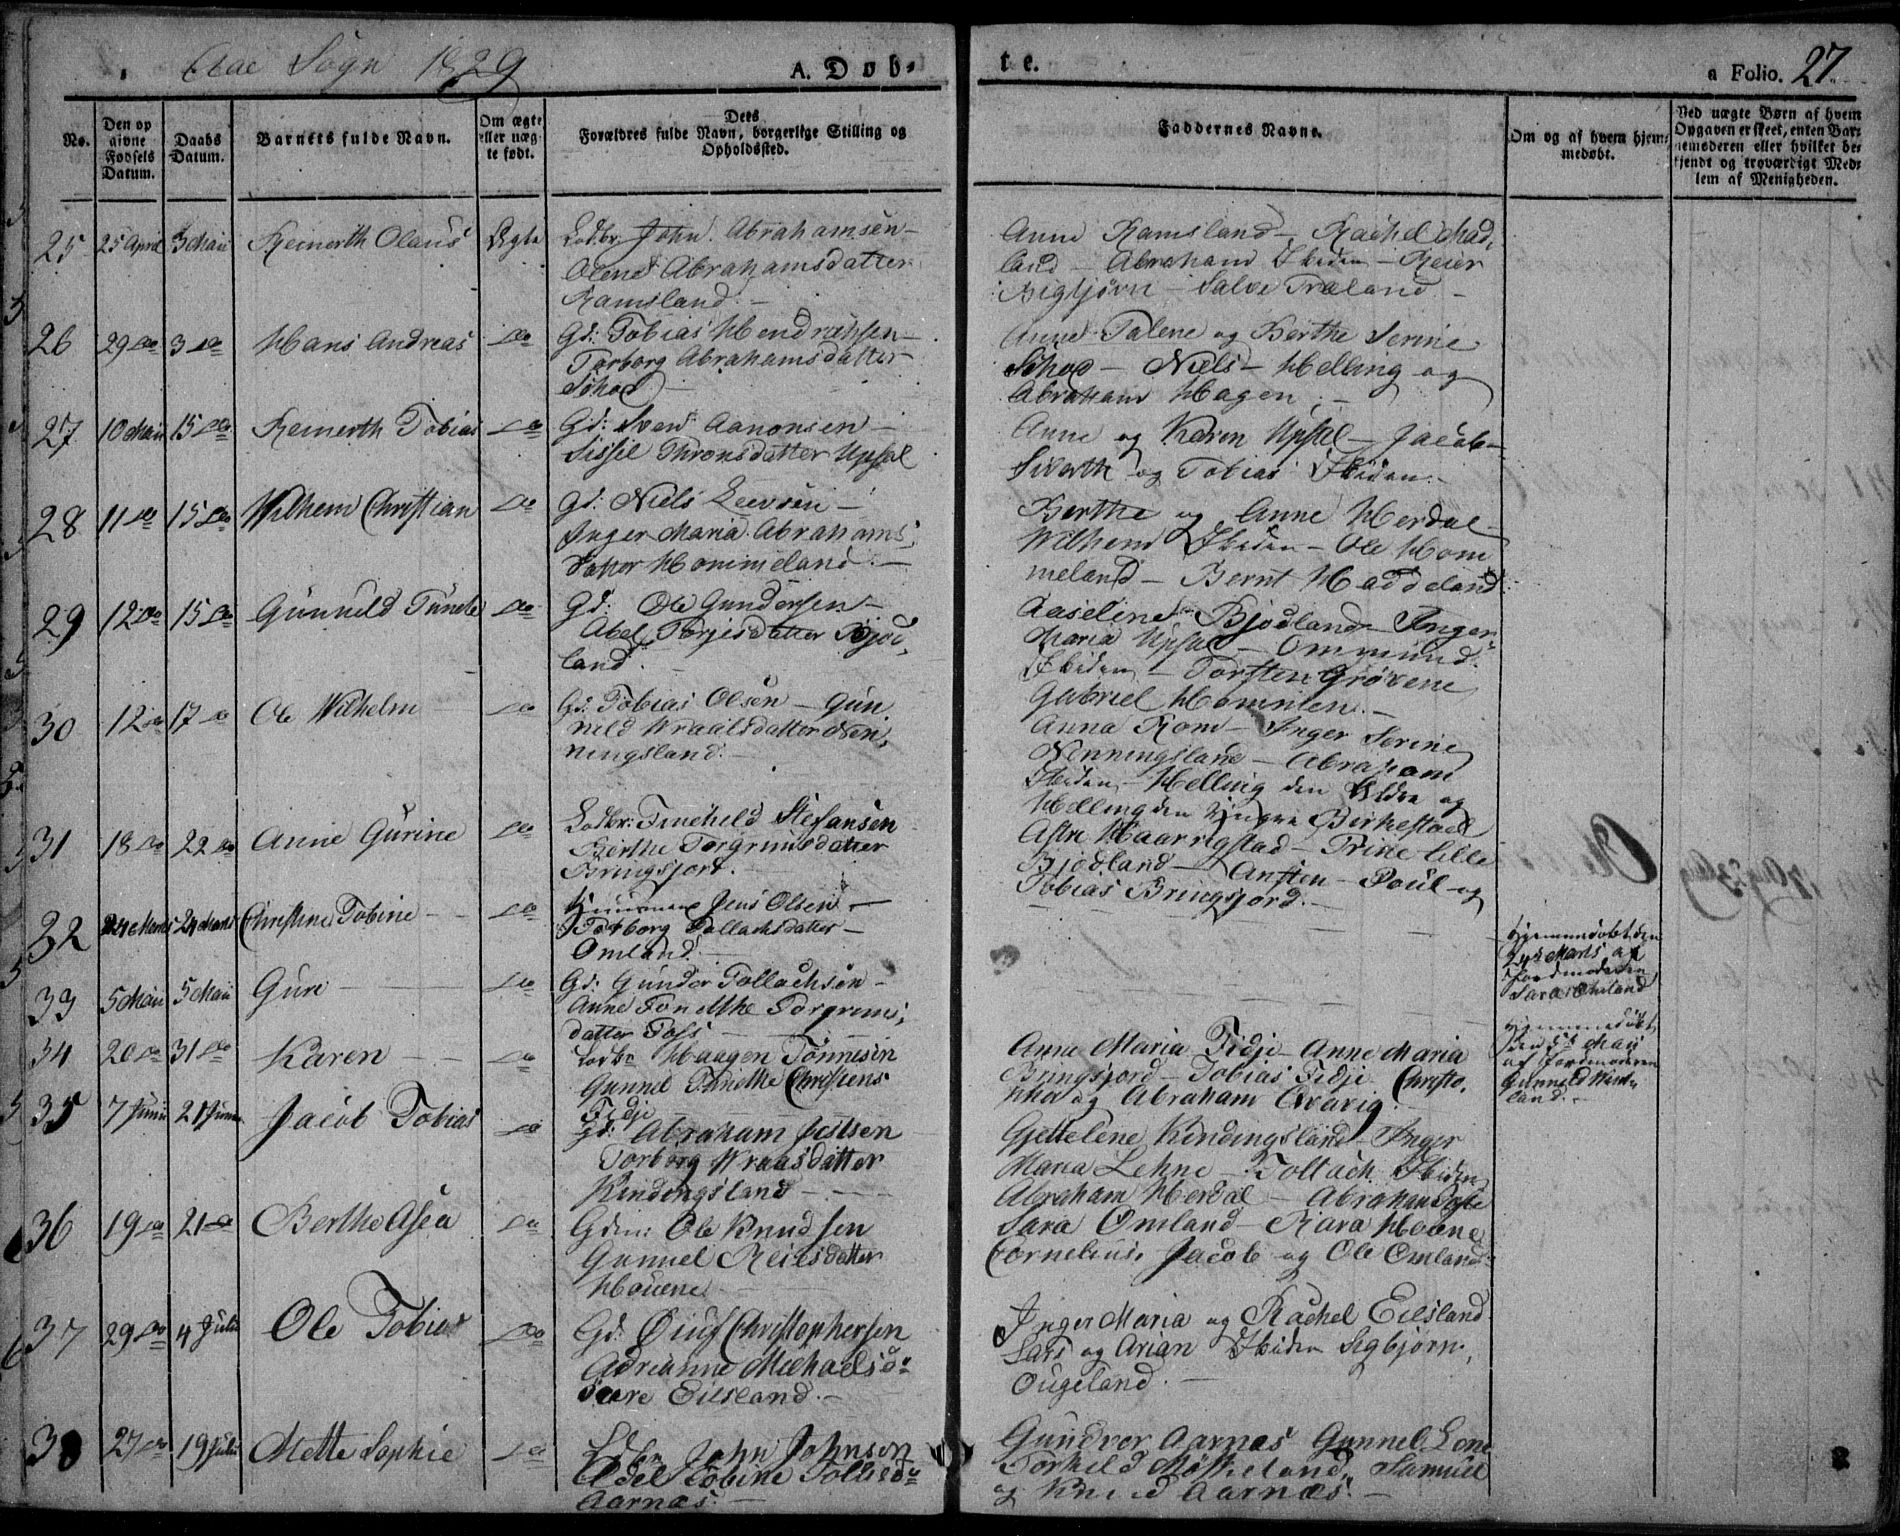 Aae Sogn 1829
A. Døb-
te.
a Folio. 27.
No.
Den op
givne
Fødsels
Datum.
Daabs
Datum.
Barnets fulde Navn.
Om ægte
eller uæg-
te født.
Dets
Forældres fulde Navn, borgerlige Stilling og
Opholdssted.
Faddernes Navne.
Om og af hvem hjem-
medøbt.
Ved uægte Børn af hvem
Opgaven er skeet, enten Bar-
nemoderen eller hvilket be-
kjendt og troværdigt Med-
lem af Menigheden.
25 25 April 3 Maii Reinerth Olaus Ægte Ladbr John Abrahamsen
Olene Abrahamsdatter
Ramsland
Anne Ramsland - Rachel Mad-
land - Abraham Ibiden - Reier
Bigljøvn - Salve Træland
26 29 do 3 do Hans Andreas do Gd: Tobias Hendrichsen
Torborg Abrahamsdatter
Anne Talene og Berthe Serine
Niels Helling og
Abraham Hagen
27 10 Maii 15 do Reinerth Tobias do Gd: Svend Aanonsen
Sissel Thronsdatter Upsal
Anne og Karen Upsal - Jacob
Siverth og Tobias Ibiden
28 11 do 15 do Wilhem Christian do Gd: Niels Leevsen
Inger Maria Abrahams
datter Hommeland
Berthe og Anne Herdal
Wilhem Ibiden - Ole Hom
meland - Bernt Haddeland
29 12 do 15 do Gunuld Tunele do Gd: Ole Gundersen
Abel Torjesdatter Bjod
land
Aaseline Bjodland - Inger
Maria Upsal - Ommund
Ibiden - Torsten Grøvene
Gabriel Homnien
30 12 do 17 do Ole Wilhelm do Gd: Tobias Olsen - Gun
nild Wraalsdatter Nen
ningsland
Anna Rom - Inger Serine
Nenningsland - Abraham
Ibiden - Helling den Eldre og
Helling den Yngre Birkestoel
31 18 do 22 do Anne Gurine do Ladbr: Stefansen
Berthe Torgrimsdatter
Bringsjort
Astri Haarrigstad - Trine Lille
Bjodland - Ansten - Poul og
Tobias Bringsjord
32 24 Marts 24 Marts Christine Tobine do Huusmand Jens Olsen
Torborg Tallachsdatter
Omland
Hjemmedøbt den
24d Marts af
Jordmoderen
Sara Omland
33 5 Maii 5 Maii Guri do Gd: Gunder Tollachsen
Anne Tonethe Torgrims
datter Foss
Hjemmedøbt
den 5d Maii
af Jordmoderen
land
34 20 do 31 do Karen do Ladbr Haagen Tønnesen
Gunnil Tonethe Christens
Fidje
Anne Maria Fidje - Anne Maria
Bringsjord - Tobias Fidje Christo
pher og Abraham Qvavig
35 7 Junii 21 Junii Jacob Tobias do Gd: Abraham Jeilsen
Torborg Wraasdatter
Kindingsland
Gjettelene Kindingsland - Inger
Maria Lehne - Tollach Ibiden
Abraham Herdal - Abraham
36 19 do 21 do Berthe Asea do Gdm: Ole Knudsen
Gunnel Reiersdatter
Houene
Sara Omland - Kara Houene
Cornelius, Jacob og Ole Omland
37 29 do 4 Julii Ole Tobias do Gd: Øiuf Christophersen
Adrianne Michaelsdr
Eilsland
Inger Maria og Rachel Eilsland
Lars og Arian Ibiden Sigbjørn
Ougeland
38 27 do 19 Julii Mette Sophie do Ladbr John Johnsen
Abel Tobine Tollisdr
Aarnæs
Gundvor Aarnæs Gunnel Lone
Torkild Møskeland, Samuel
og Knud Aarnæs